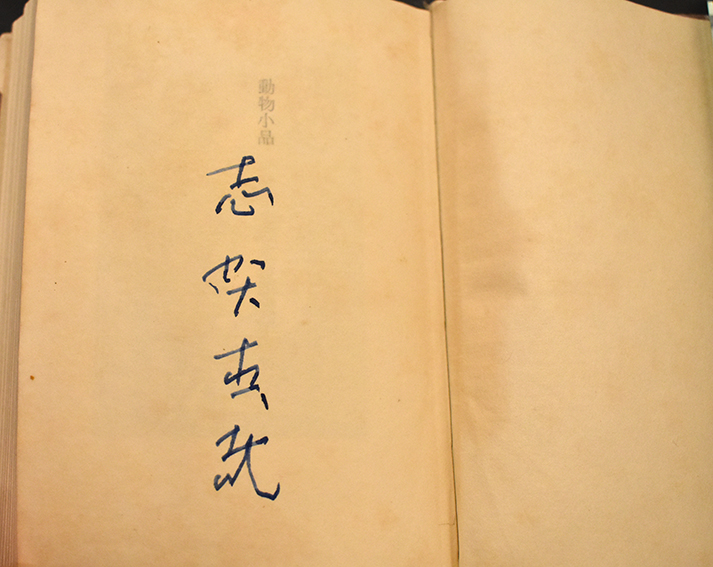 動物小品
志賀直哉